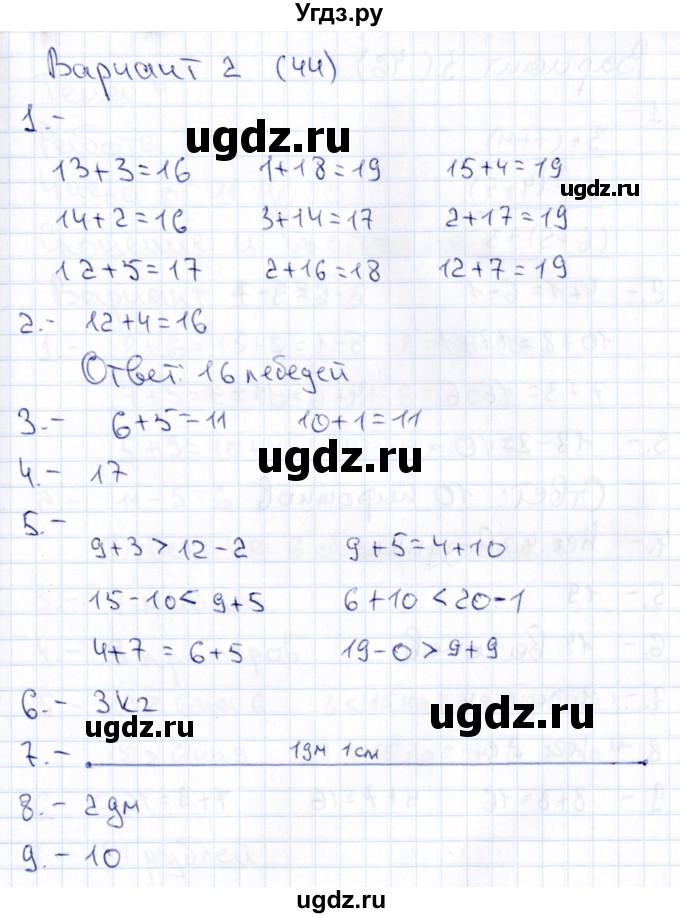 Угдз.ру
Вариант 2 (44)
1.-
ugdz.ru
13+3=16 1+18=19 15+4=19
ugdz.ru
14+2=16 3+14=17 2+17=19
12+5=17 2+16=18 12+7=19
2.- 12+4=16
Ответ: 16 лебедей
3.- 6+5=11 10+1=11
ugdz.ru
4.- 17
5.-
9+3>12-2 9+5=4+10
15-10<9+5 6+10<20-1
4+7=6+5 19-0>9+9
6.- 3 кг
ugdz.ru ugdz.ru
7.- 1дм 1см
8.- 2дм
9.- 10
ugdz.ru